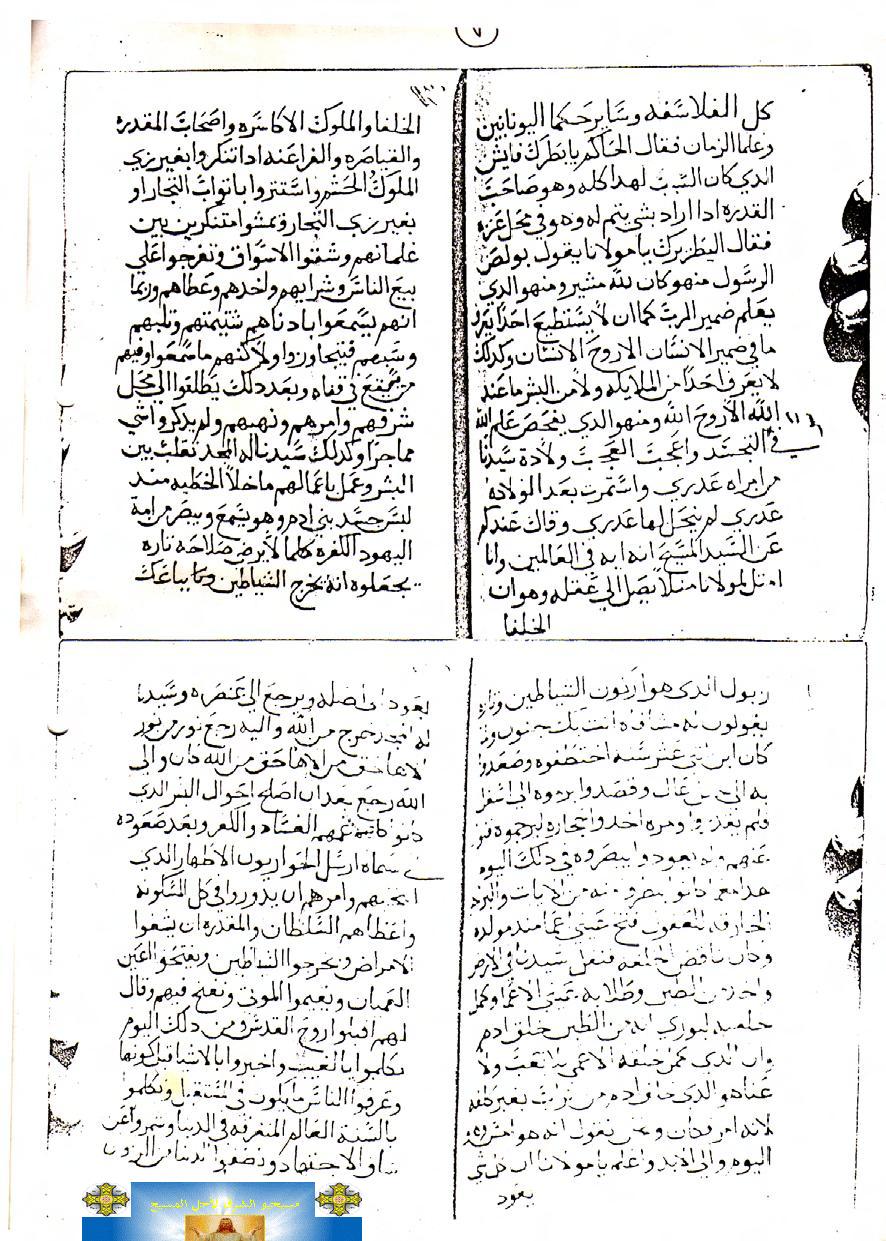 ٧
كل الفلاسفه وسايرحكما اليونانين
وعلما الزمان فقال الحاكم يابطرك فايش
الدي كان السبب لهدا كله وهو صاحب
القدره ادا اراد بشي يتم له وهو في محل عزه
فقال البطريرك يا مولانا يقول بولص
الرسول منهو كان لله مشير ومنهو الدي
يعلم ضمير الرب كما ان لا يستطيع احدا يعرف
ما في ضمير الانسان الا روح الانسان وكدلك
لا يعرف احدا من الملايكه ولا من البشر ما عند
الله الا روح الله ومنهو الدي يفحص علم الله
في التجسد واعجب العجب ولادة سيدنا
من امراه عدري واستمرت بعد الولاده
عدري لم ينحل لها عدري وقال عندكم
عن السيد المسيح انه ايه في العالمين وانا
امتل لمولانا متلا يصل الي عقله وهو ان
الخلفا
الخلفا والملوك الاكاسره واصحاب المقدره
والقياصره والفراعنه ادا تنكروا بغير زي
الملوك واستتروا باتواب التجار او
بغير زي التجار ومشوا متنكرين بين
غلمانهم وشقوا الاسواق وتفرجوا علي
بيع الناس وشرايهم واخدهم وعطاهم وربما
انهم يسمعوا بادناهم شتيمتهم وتلبهم
وسبهم فيتجاوزوا ولا كنهم ما سمعوا وفيهم
من في قفاه وبعد دلك يطلقوا الي محل
شرفهم وامرهم ونهيهم ولم يدكروا شي
مما جرا وكدلك سيدنا له المجد تقلب بين
البشر وعمل باعمالهم ما خلا الخطيه مند
لبس جسد بني ادم وهو يسمع ويبصر من امة
اليهود الكفره كلما لا يرض صلاحه تاره
يجعلوه انه يخرج الشياطين
زبول الدي هو اركون الشياطين وتاره
يقولون له مشافاه انت بك جنون ولما
كان ابن اتني عشر سنه اختطفوه وصعدوا
به الي عال وقصدوا يرموه الي اسفل
فلم يقدروا ومره اخدوا حجاره ليرجموه
عنهم ولم يعود وا يبصروه في دلك اليوم
هدا مع ما كانوا ينظروه منه من الايات والبراهين
الخارقه للعقول فتح عيني اعما مند مولده
وكان ناقص الخلقه فتفل سيدنا في الارض
واخد من الطين وطلا به عيني الاعما وكمل
خلقته ليوري انه من الطين خلق ادم
وان الدي كمل خلقة الاعمي بلا تعب ولا
عنا هو الدي خلق ادم من تراب بغير كلفه
لانه امر فكان ونحن نقول انه هو امس وهو
اليوم والي الابد واعلم يا مولانا ان كل شي
يعود
يعود الي اصله ويرجع الي عنصره وسيدنا
له المجد خرج من الله واليه رجع نور من نور
الاها حق من الاها حق من الله كان والي
الله رجع بعد ان اصلح احوال البشر الدي
كانوا الفساد والكفر وبعد صعوده
الي سماه ارسل الحواريون الاطهار الدي
انتخبهم وامرهم ان يدوروا في كل المسكونه
واعطاهم السلطان والمقدره ان يشفوا
الامراض ويخرجوا الشياطين ويفتحوا اعين
العميان ويقيموا الموتي ونفخ فيهم وقال
لهم اقبلوا روح القدس ومن دلك اليوم
تكلموا بالغيب واخبروا بالاشيا قبل كونها
وعرفوا الناس ما يكون في المستقبل وتكلموا
بالسنة العالم المتفرقه في الدنيا
مسيحيو الشرق لأجل المسيح